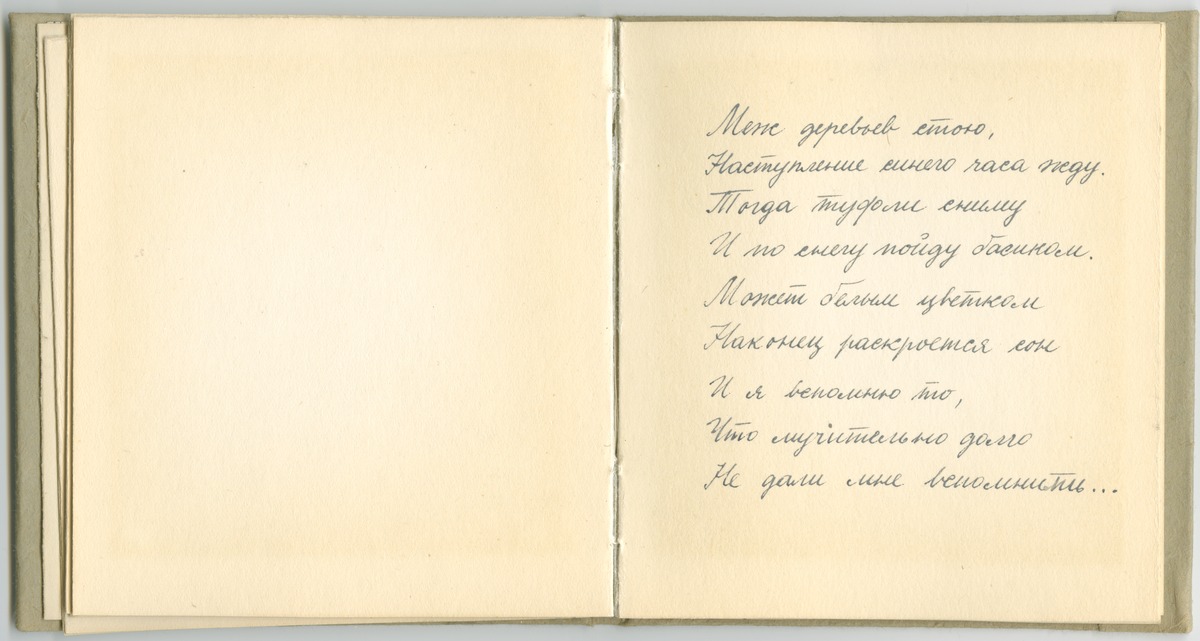 Меж деревьев стою,
Наступление синего часа жду.
Тогда туфли сниму
И по снегу пойду басиком.
Может белым цветком
Наконец раскроется сон
И я вспомню то,
Что мучительно долго
Не дали мне вспомнить...